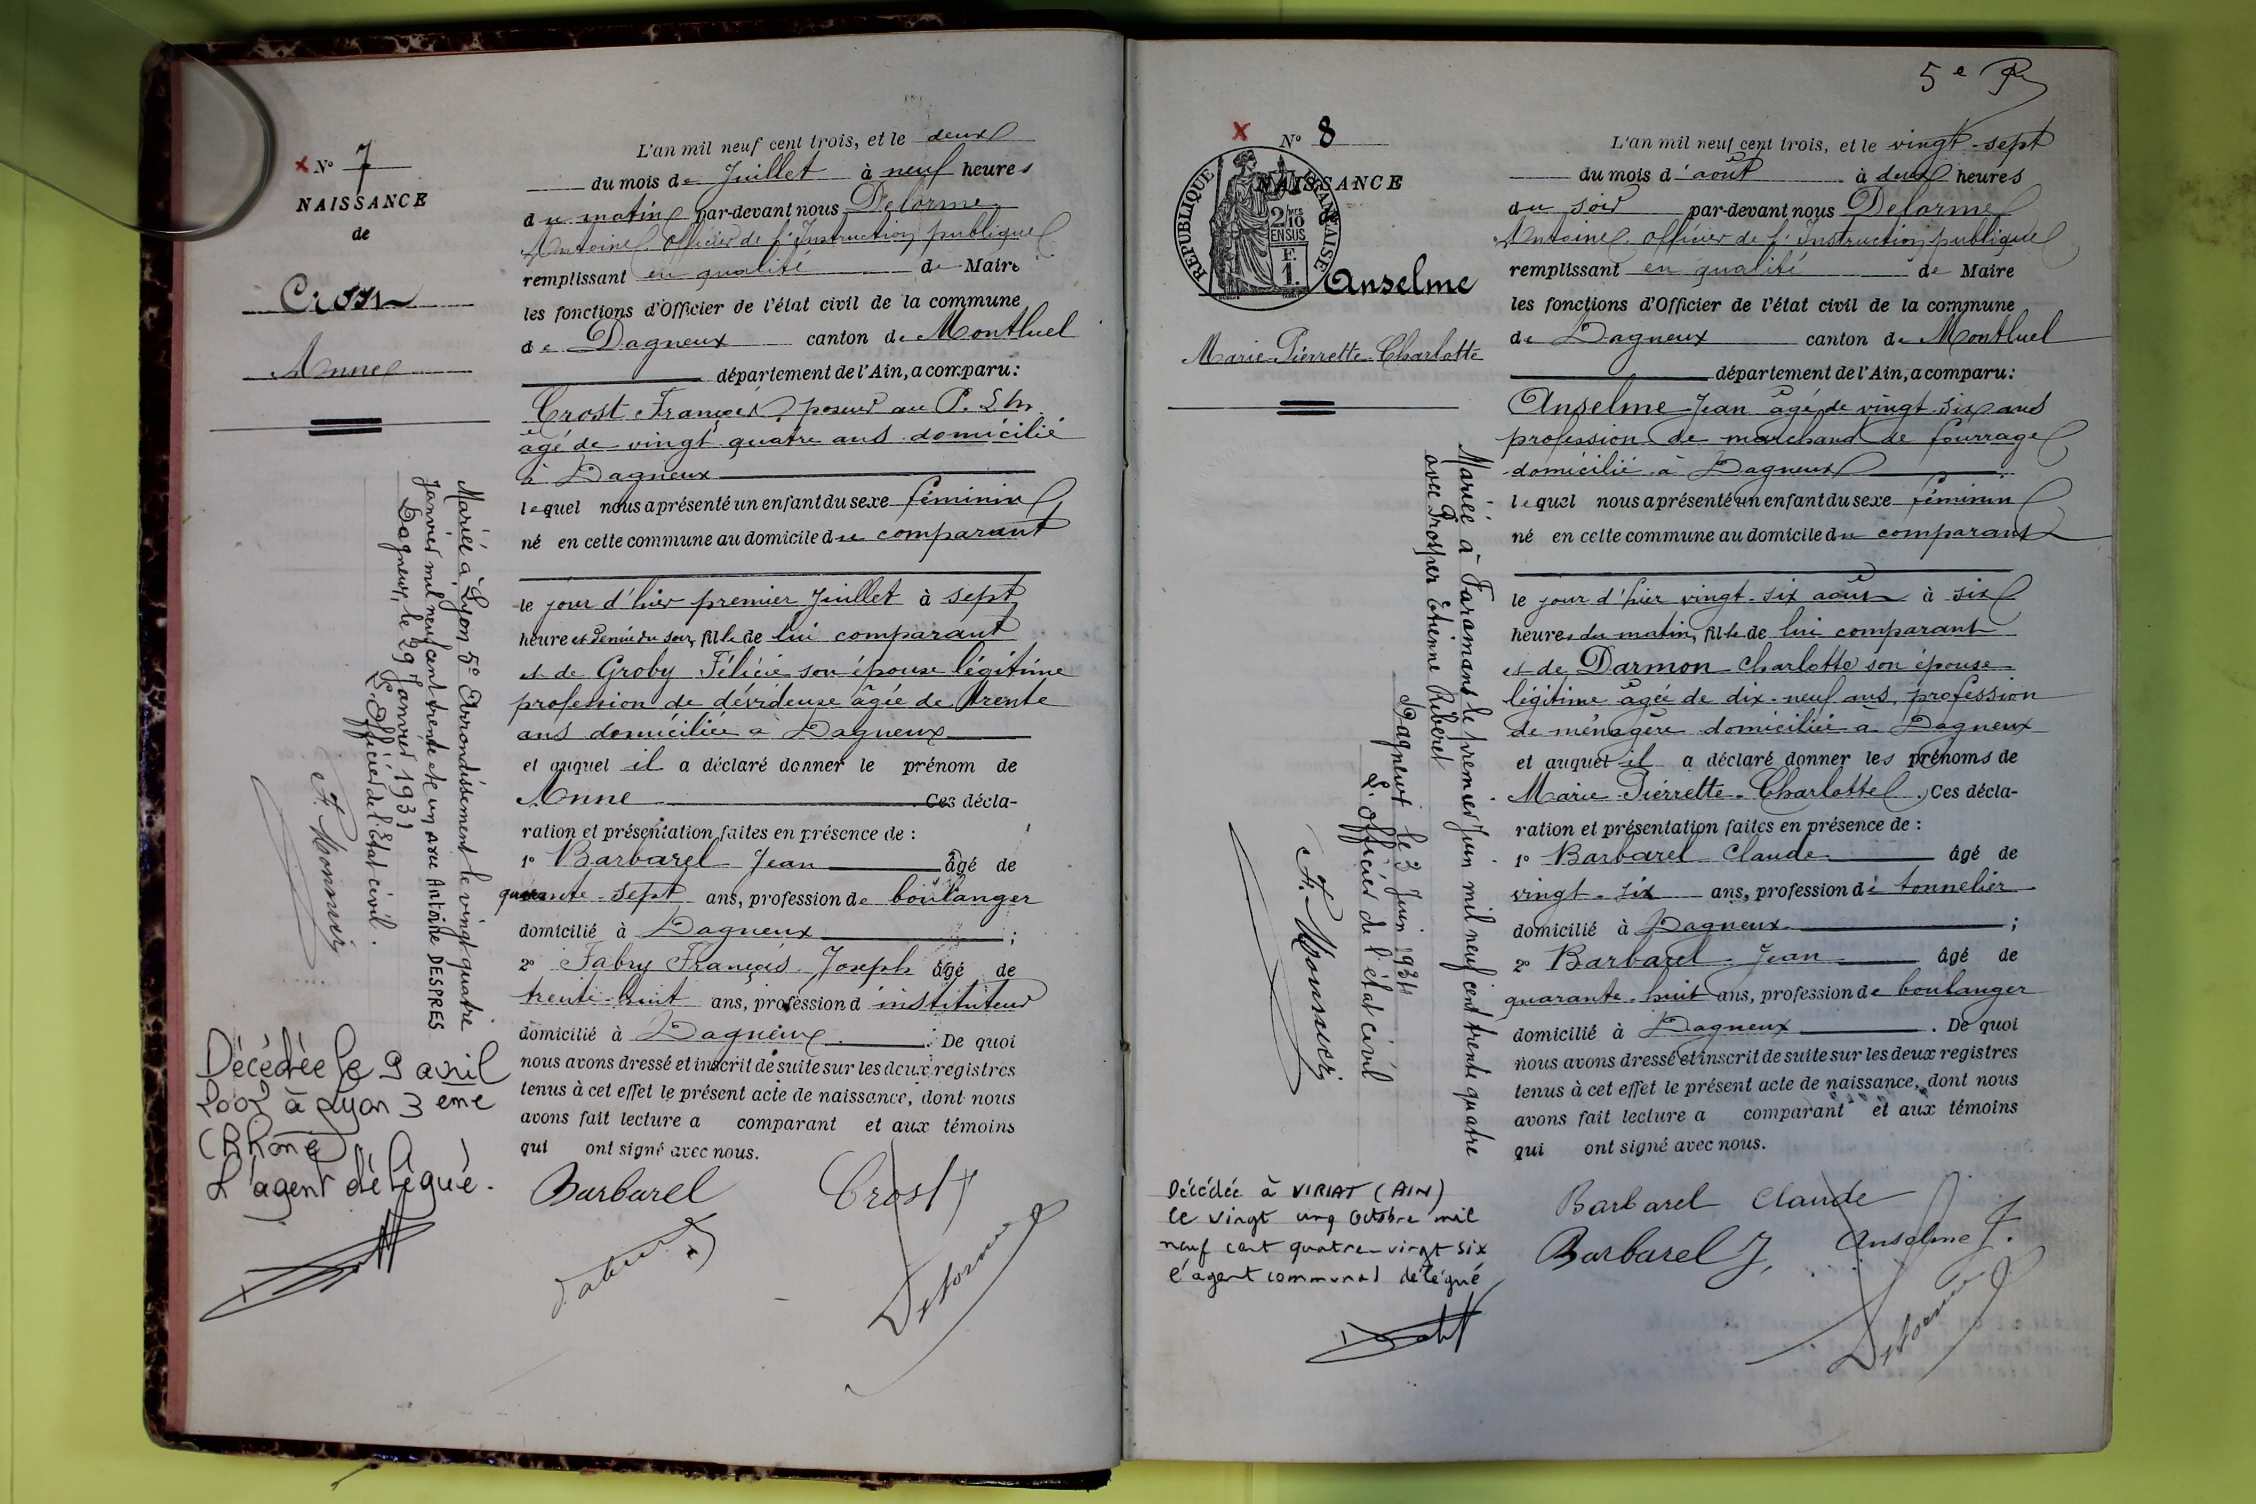 N° 7
NAISSANCE
de
Crost
Anne
Mariée à Lyon 5e Arrondissement le vingt quatre
Janvier mil neuf cent trente et un avec Antoine DESPRES
Dagneux, le 29 Janvier 1931
L'Officier de l'Etat civil.
Décédée le 9 avril
à Lyon 3 eme
(Rhône)
L'agent délégué.
L'an mil neuf cent trois, et le deux
du mois de Juillet à neuf heures
du matin par-devant nous Delorme
Antoine Officier de l'Instruction publique
remplissant en qualité de Maire
les fonctions d'Officier de l'état civil de la commune
de Dagneux canton de Montluel
département de l'Ain, a comparu:
Crost François, poseur au P. L. M.
âgé de vingt quatre ans domicilié
à Dagneux
lequel nous a présenté un enfant du sexe féminin
né en cette commune au domicile du comparant
le jour d'hier premier Juillet à sept
heure et demie du soir, fille de lui comparant
et de Groby Félicie son épouse légitime
profession de dévideuse âgée de trente
ans domiciliée à Dagneux
et auquel il a déclaré donner le prénom de
Anne Ces décla-
ration et présentation faites en présence de :
1° Barbarel Jean âgé de
quarante-sept ans, profession de boulanger
domicilié à Dagneux ;
2° Fabry François Joseph âgé de
trente-huit ans, profession d'instituteur
domicilié à Dagneux . De quoi
nous avons dressé et inscrit de suite sur les deux registres
tenus à cet effet le présent acte de naissance, dont nous
avons fait lecture a comparant et aux témoins
qui ont signé avec nous.
Barbarel Crost
Delorme
5e
N° 8
NAISSANCE
de
REPUBLIQUE FRANÇAISE
2/10
EN SUS
F.
1.
Anselme
Marie-Pierrette-Charlotte
Mariée à Faramans le premier Juin mil neuf cent trente quatre
avec Prosper Etienne Riberet
Dagneux le 3 Juin 1934
L'officier de l'état civil
Décédée à VIRIAT (AIN)
le vingt cinq octobre mil
neuf cent quatre-vingt six
l'agent communal délégué
L'an mil neuf cent trois, et le vingt-sept
du mois d'août à deux heures
du soir par-devant nous Delorme
Antoine Officier de l'Instruction publique
remplissant en qualité de Maire
les fonctions d'Officier de l'état civil de la commune
de Dagneux canton de Montluel
département de l'Ain, a comparu:
Anselme Jean âgé de vingt six ans
profession de marchand de fourrage
domicilié à Dagneux
lequel nous a présenté un enfant du sexe féminin
né en cette commune au domicile du comparant
le jour d'hier vingt-six août à six
heures du matin, fille de lui comparant
et de Darmon Charlotte son épouse
légitime âgée de dix-neuf ans, profession
de ménagère domiciliée à Dagneux
et auquel il a déclaré donner les prénoms de
Marie-Pierrette-Charlotte. Ces décla-
ration et présentation faites en présence de :
1° Barbarel Claude âgé de
vingt-six ans, profession de tonnelier
domicilié à Dagneux ;
2° Barbarel Jean âgé de
quarante-huit ans, profession de boulanger
domicilié à Dagneux . De quoi
nous avons dressé et inscrit de suite sur les deux registres
tenus à cet effet le présent acte de naissance, dont nous
avons fait lecture a comparant et aux témoins
qui ont signé avec nous.
Barbarel Claude
Barbarel J. Anselme J.
Delorme